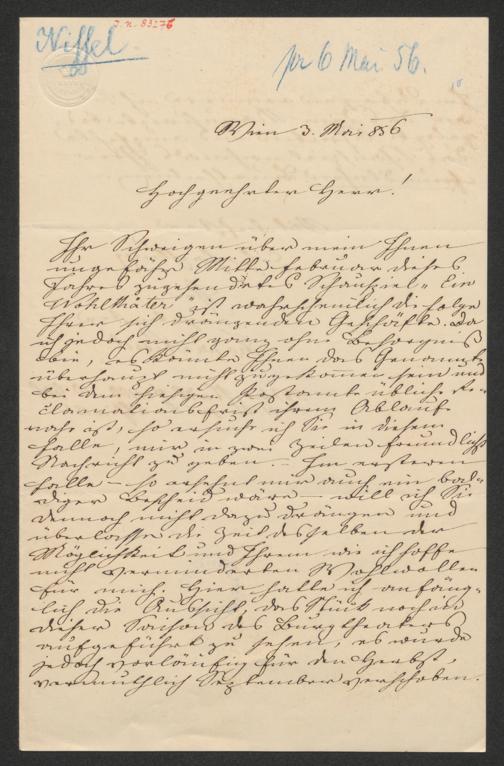 J. N. 83276
Nissel
pr 6 Mai 56.
Wien 3. Mai 856
Hochgeehrter Herr!
Ihr Schweigen über mein Ihnen
ungefähr Mitte Februar dieses
Jahres zugesendetes Schauspiel „Ein
Wohlthäter“ ist wahrscheinlich die Folge
Ihrer sich drängenden Geschäfte. Da
ich jedoch nicht ganz ohne Besorgniß
bin, es könnte Ihnen das Genannte
überhaupt nicht zugekommen sein und
bei dem hiesigen Postamte übliche Re-
clamationsfrist ihrem Ablaufe
nahe ist, so ersuche ich Sie in diesem
Falle, mir in zwei Zeilen freundlichst
Nachricht zu geben. – Im ersteren
Falle – so ersehnt mir auch ein bal-
diger Bescheid wäre – will ich Sie
dennoch nicht dazu drängen und
überlasse die Zeit desselben der
Möglichkeit und Ihrem wie ich hoffe
nicht verminderten Wohlwollen
für mich. Hier hatte ich anfäng-
lich die Aussicht, das Stück noch in
dieser Saison des Burgtheaters
aufgeführt zu sehen, es wurde
jedoch vorläufig für den Herbst,
vermuthlich September verschoben.